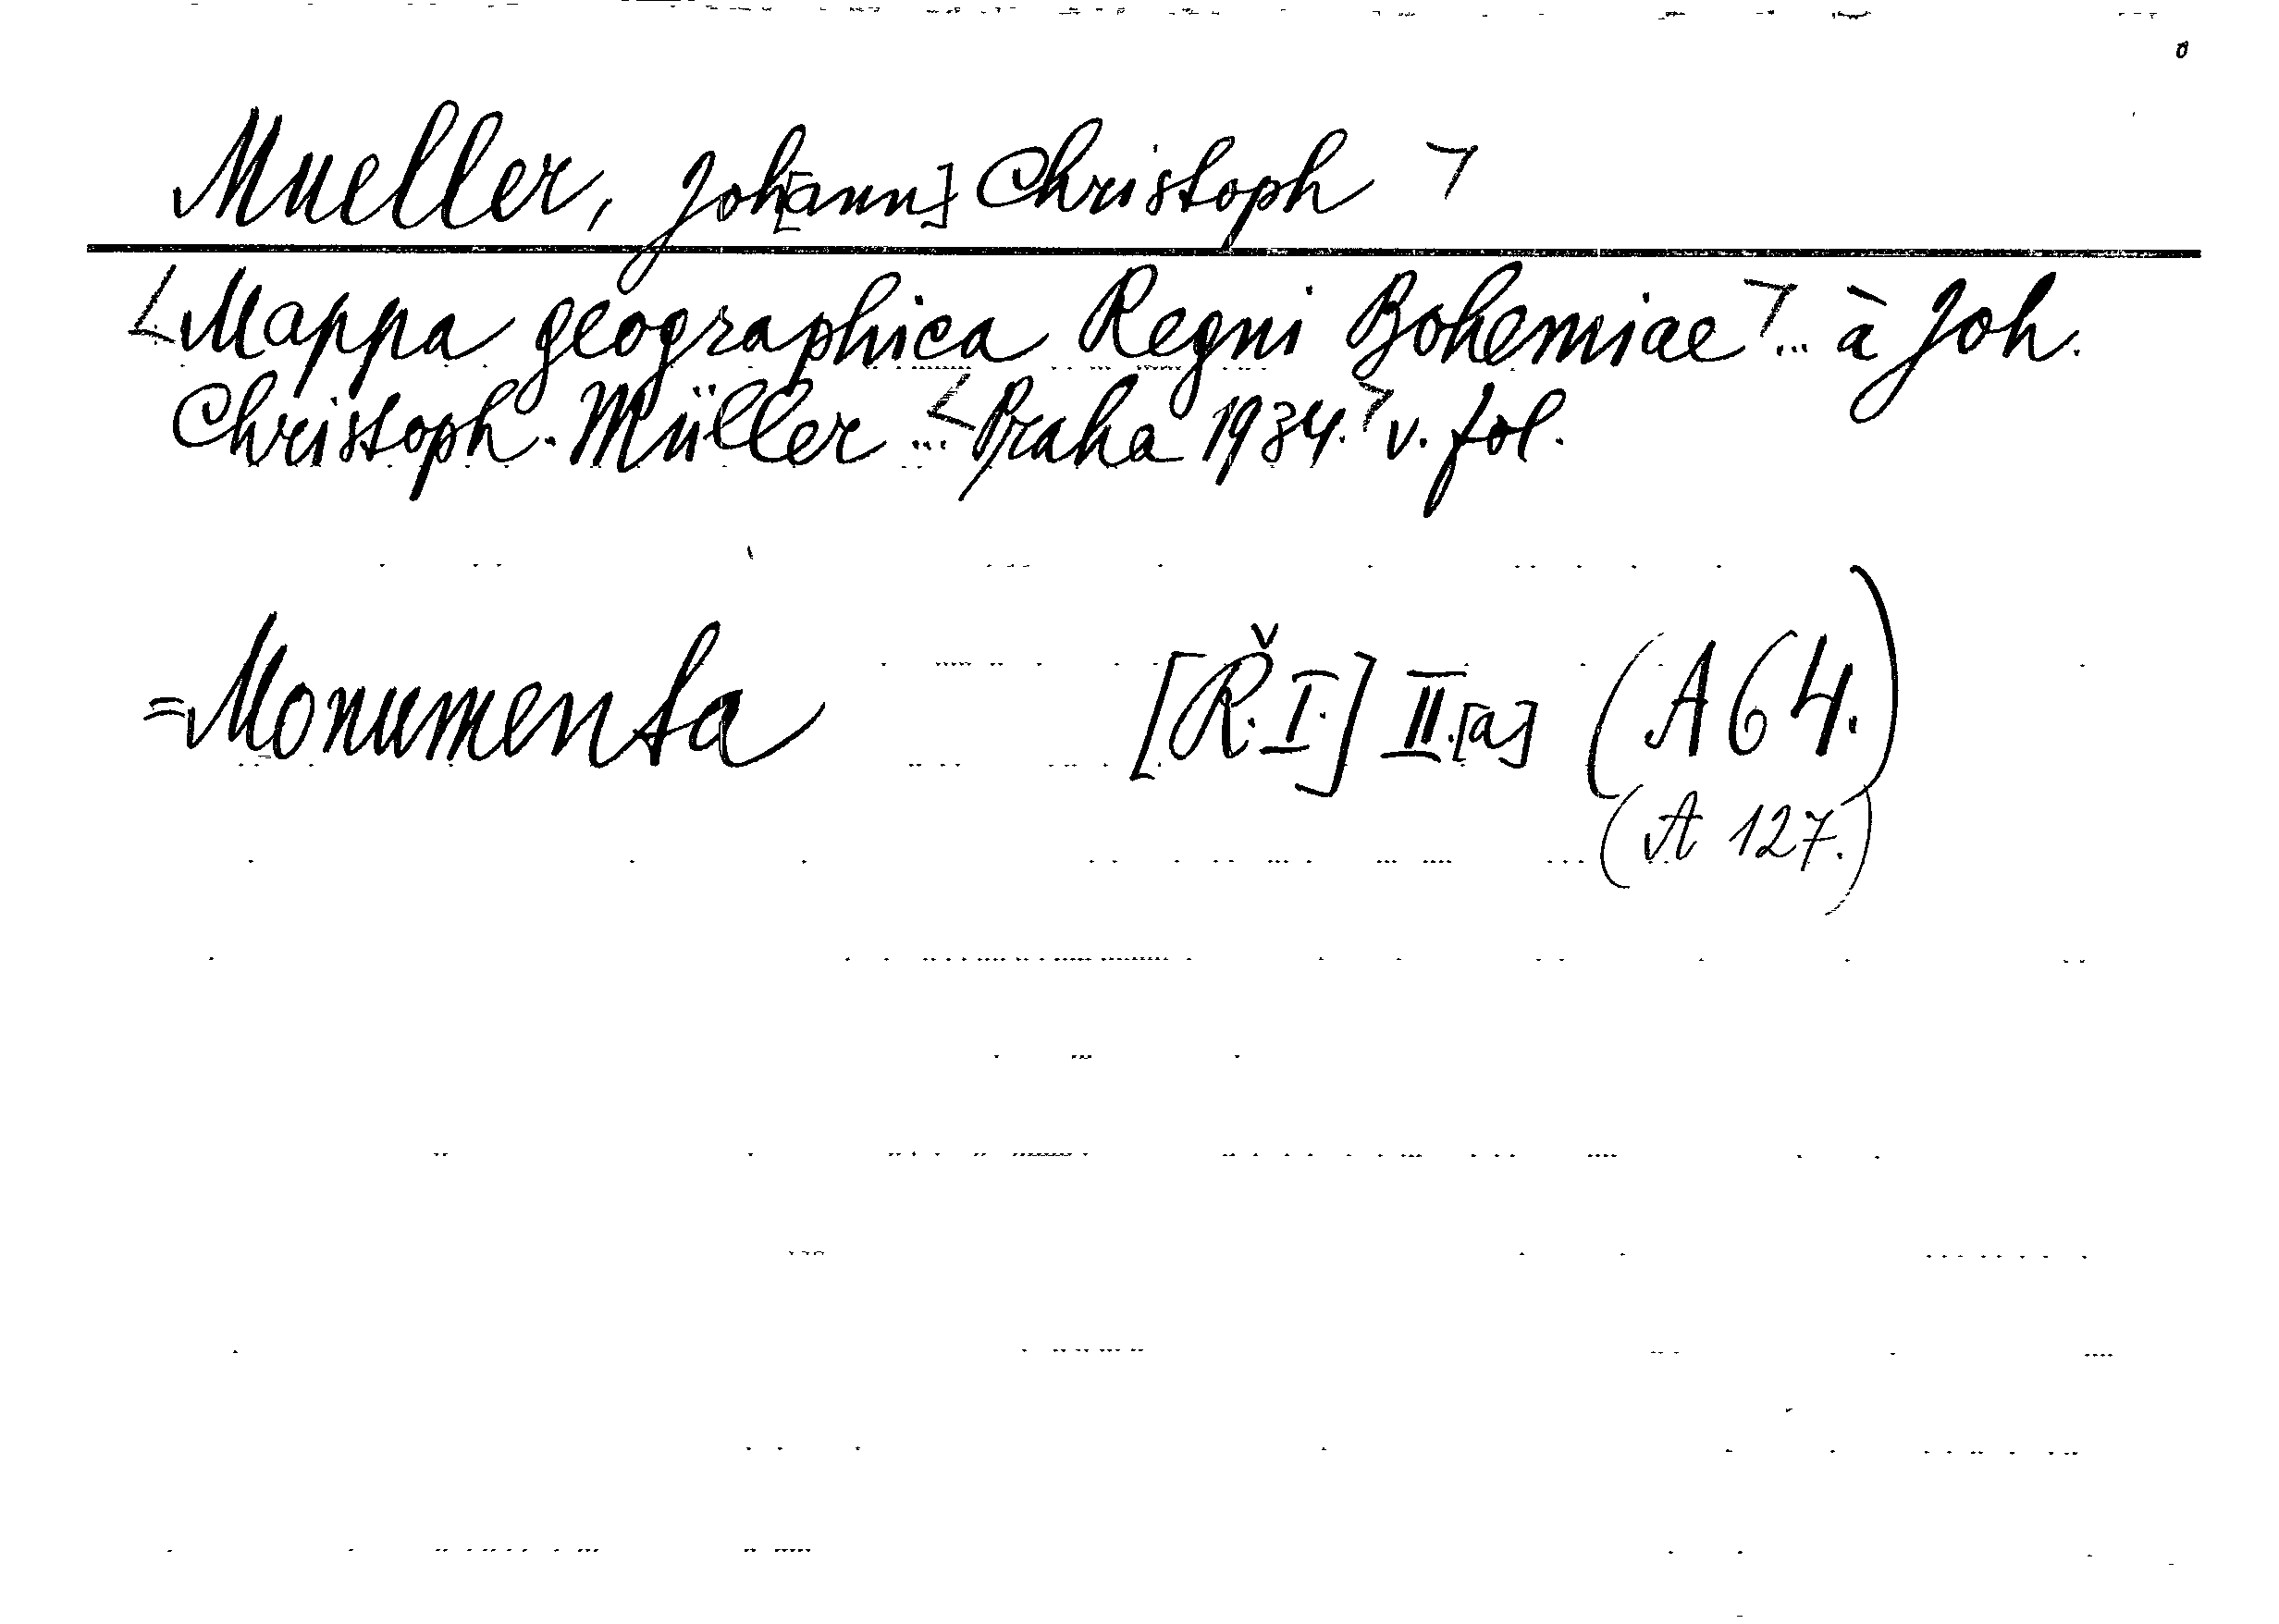 Mueller, Joh[ann] Christoph >
<Mappa geographica Regni Bohemiae> ... à Joh.
Christoph. Müller ... <Praha 1934.> v. fol.
=Monumenta [Ř. I.] II.[a] (A 64.)
(A 127.)